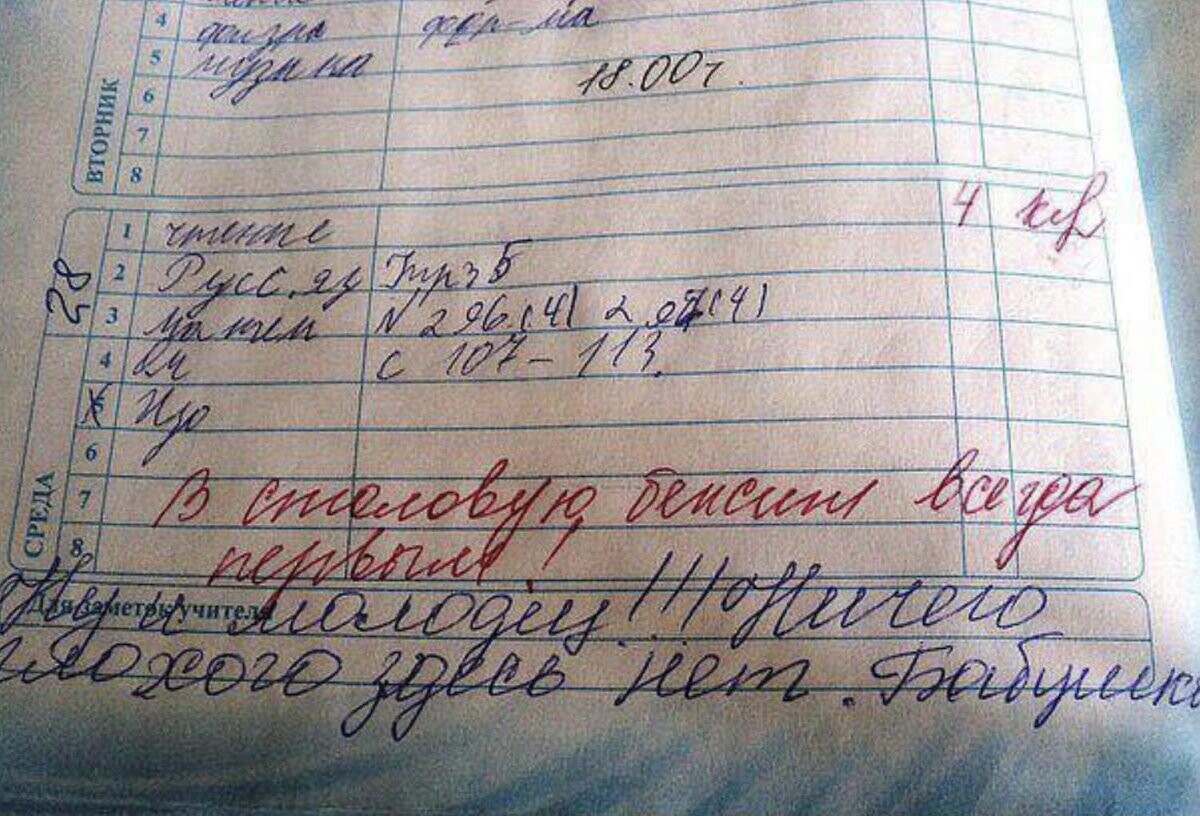 ВТОРНИК
4 физра фор-ма
5 музыка 18.00 г.
6
7
8
СРЕДА
28
1 чтение 4
2 Русс. яз Упр 3 Б
3 матем N 296 (4) 297 (4)
4 вч с 107 - 113.
5 Изо
6
7 В столовую бежит всегда
8 первым!
Для заметок учителя
Ну и молодец!!! Ничего
плохого здесь нет. Бабушка